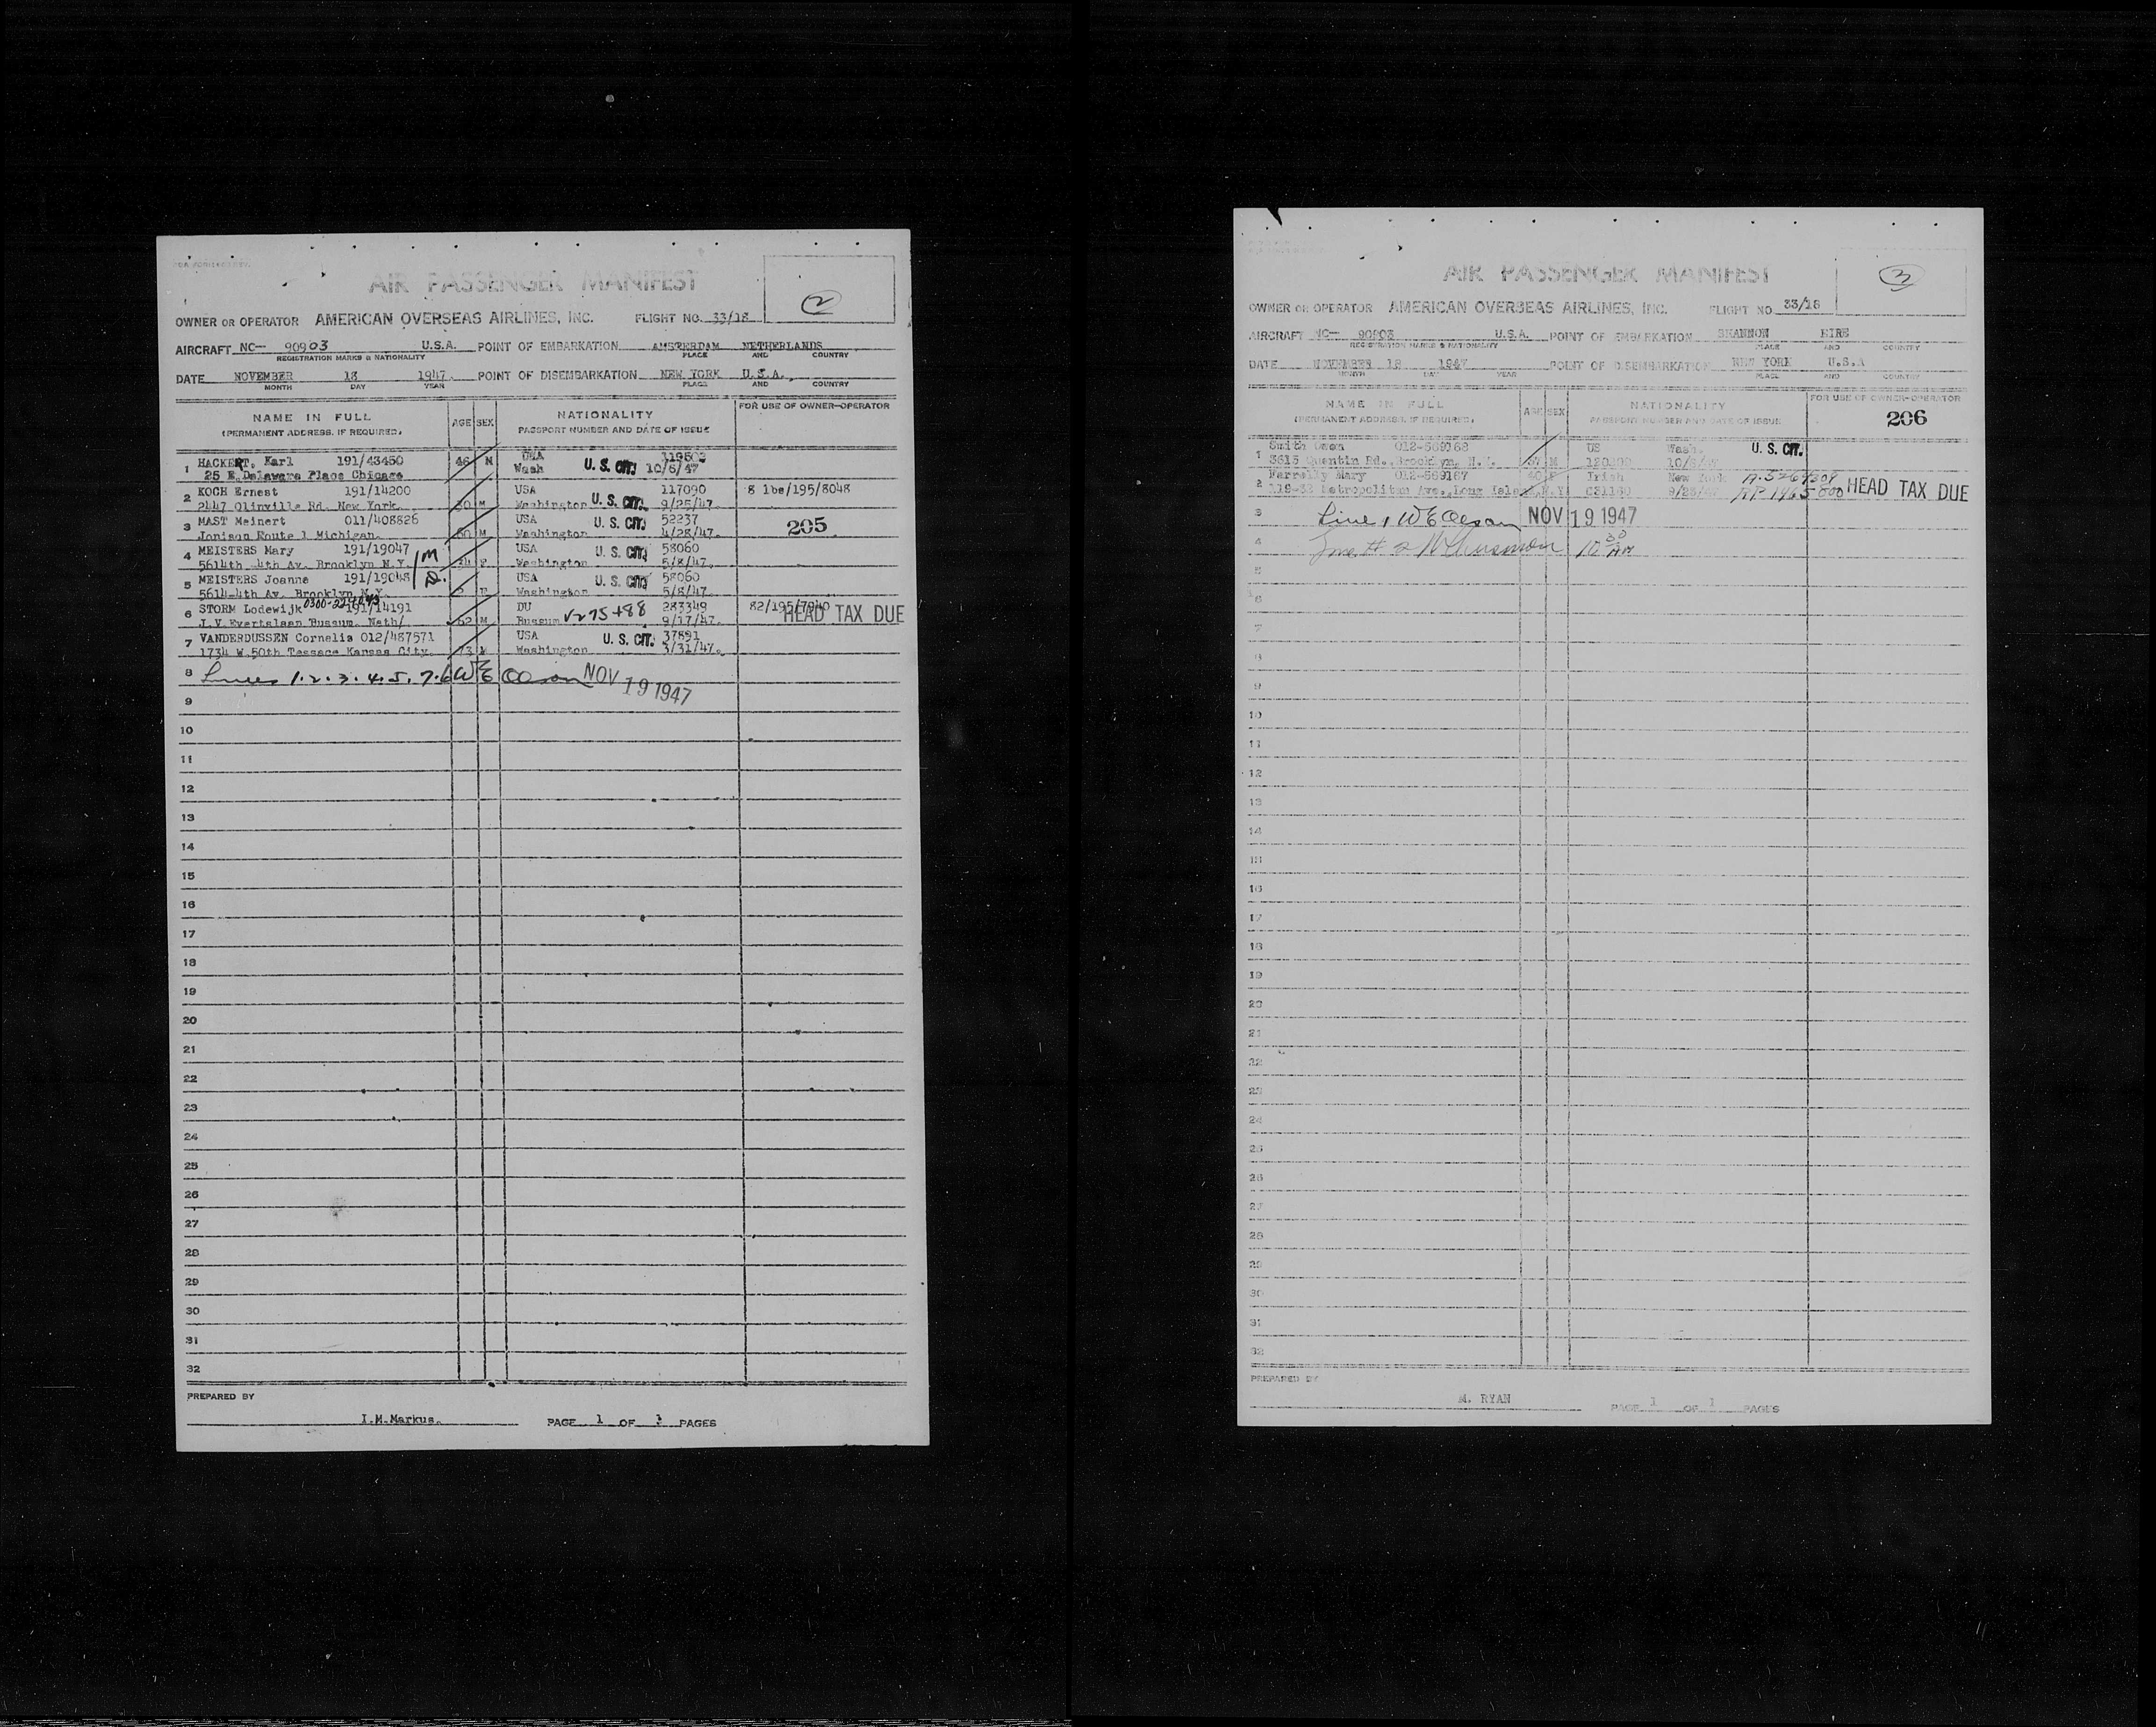 AIR PASSENGER MANIFEST
2
OWNER OR OPERATOR AMERICAN OVERSEAS AIRLINES, INC. FLIGHT NO. 33/18
AIRCRAFT NC— 90903 U.S.A. POINT OF EMBARKATION AMSTERDAM NETHERLANDS
REGISTRATION MARKS & NATIONALITY PLACE AND COUNTRY
DATE NOVEMBER 18 1947. POINT OF DISEMBARKATION NEW YORK U.S.A.
MONTH DAY YEAR PLACE AND COUNTRY
NAME IN FULL AGE SEX NATIONALITY FOR USE OF OWNER—OPERATOR
(PERMANENT ADDRESS, IF REQUIRED) PASSPORT NUMBER AND DATE OF ISSUE
1 HACKERT, Karl 191/43450 46 M USA
25 E Delaware Place Chicago Wash U. S. CIT. 10/6/47
2 KOCH Ernest 191/14200 USA 117090 8 lbs/195/8048
2447 Olinville Rd. New York. M Washington U. S. CIT. 9/25/47.
3 MAST Meinert 011/408826 USA U. S. CIT. 52237 205
Jenison Route 1 Michigan. M Washington 4/28/47.
4 MEISTERS Mary 191/19047 M USA U. S. CIT. 58060
5614th 4th Av. Brooklyn N.Y. F Washington 5/8/47.
5 MEISTERS Joanne 191/19048 D. USA U. S. CIT. 58060
5614-4th Av. Brooklyn N.Y. F Washington 5/8/47.
6 STORM Lodewijk 191/14191 DU V275488 283349 82/195/7940
J.V.Evertslaan Bussum. Neth/ 62 M Bussum 9/17/47. HEAD TAX DUE
7 VANDERDUSSEN Cornelia 012/487571 USA U. S. CIT. 37891
1734 W.50th Kansas City. 73 Washington 3/31/47.
8 Lines 1.2.3.4.5.7.6 W E Olson NOV 19 1947
9
10
11
12
13
14
15
16
17
18
19
20
21
22
23
24
25
26
27
28
29
30
31
32
PREPARED BY
I.M.Markus. PAGE 1 OF 1 PAGES
AIR PASSENGER MANIFEST
3
OWNER OR OPERATOR AMERICAN OVERSEAS AIRLINES, INC. FLIGHT NO 33/18
AIRCRAFT NC— 90903 U.S.A. POINT OF EMBARKATION SHANNON EIRE
REGISTRATION MARKS & NATIONALITY PLACE AND COUNTRY
DATE NOVEMBER 18 1947 POINT OF DISEMBARKATION NEW YORK U.S.A
MONTH DAY YEAR PLACE AND COUNTRY
NAME IN FULL AGE SEX NATIONALITY FOR USE OF OWNER-OPERATOR
(PERMANENT ADDRESS, IF REQUIRED) PASSPORT NUMBER AND DATE OF ISSUE 206
1 Smith Owen 012-569168 US Wash. U. S. CIT.
3615 Quentin Rd., Brooklyn, N.Y. M
2 Farrelly Mary 012-569187 Irish New York
119-33 Metropolitan Ave., Long Isle, N.Y. HEAD TAX DUE
3 Line 1 W E Olson NOV 19 1947
4 Line # 2 10 30 AM
5
6
7
8
9
10
11
12
13
14
15
16
17
18
19
20
21
22
23
24
25
26
27
28
29
30
31
32
PREPARED BY
M. RYAN PAGE 1 OF 1 PAGES